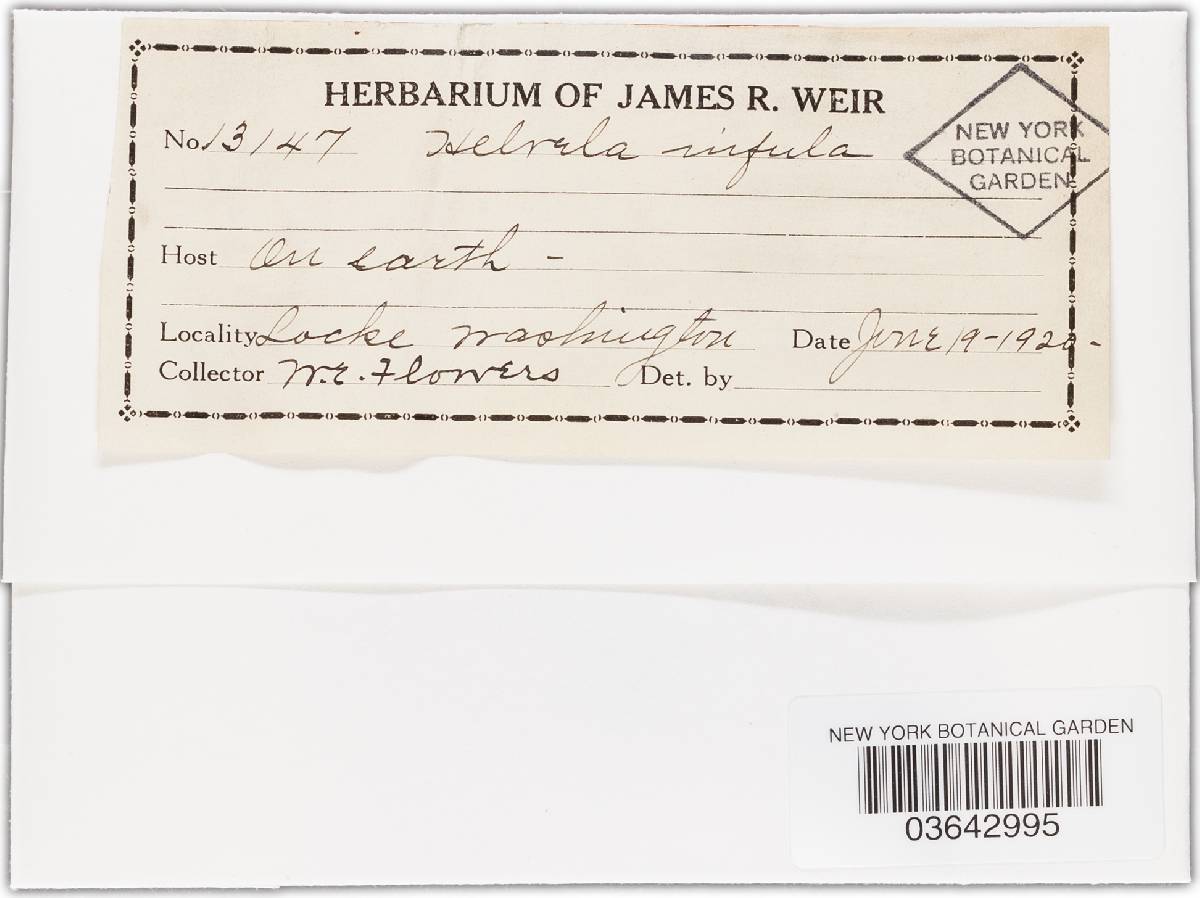 HERBARIUM OF JAMES R. WEIR
No. 13147 Helvela infula
NEW YORK
BOTANICAL
GARDEN
Host On earth -
Locality Locke Washington Date June 19-1920-
Collector W.E. Flowers Det. by
NEW YORK BOTANICAL GARDEN
03642995